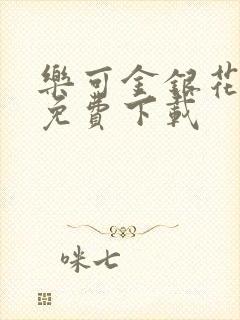 樂可金銀花
免費下載
咪七